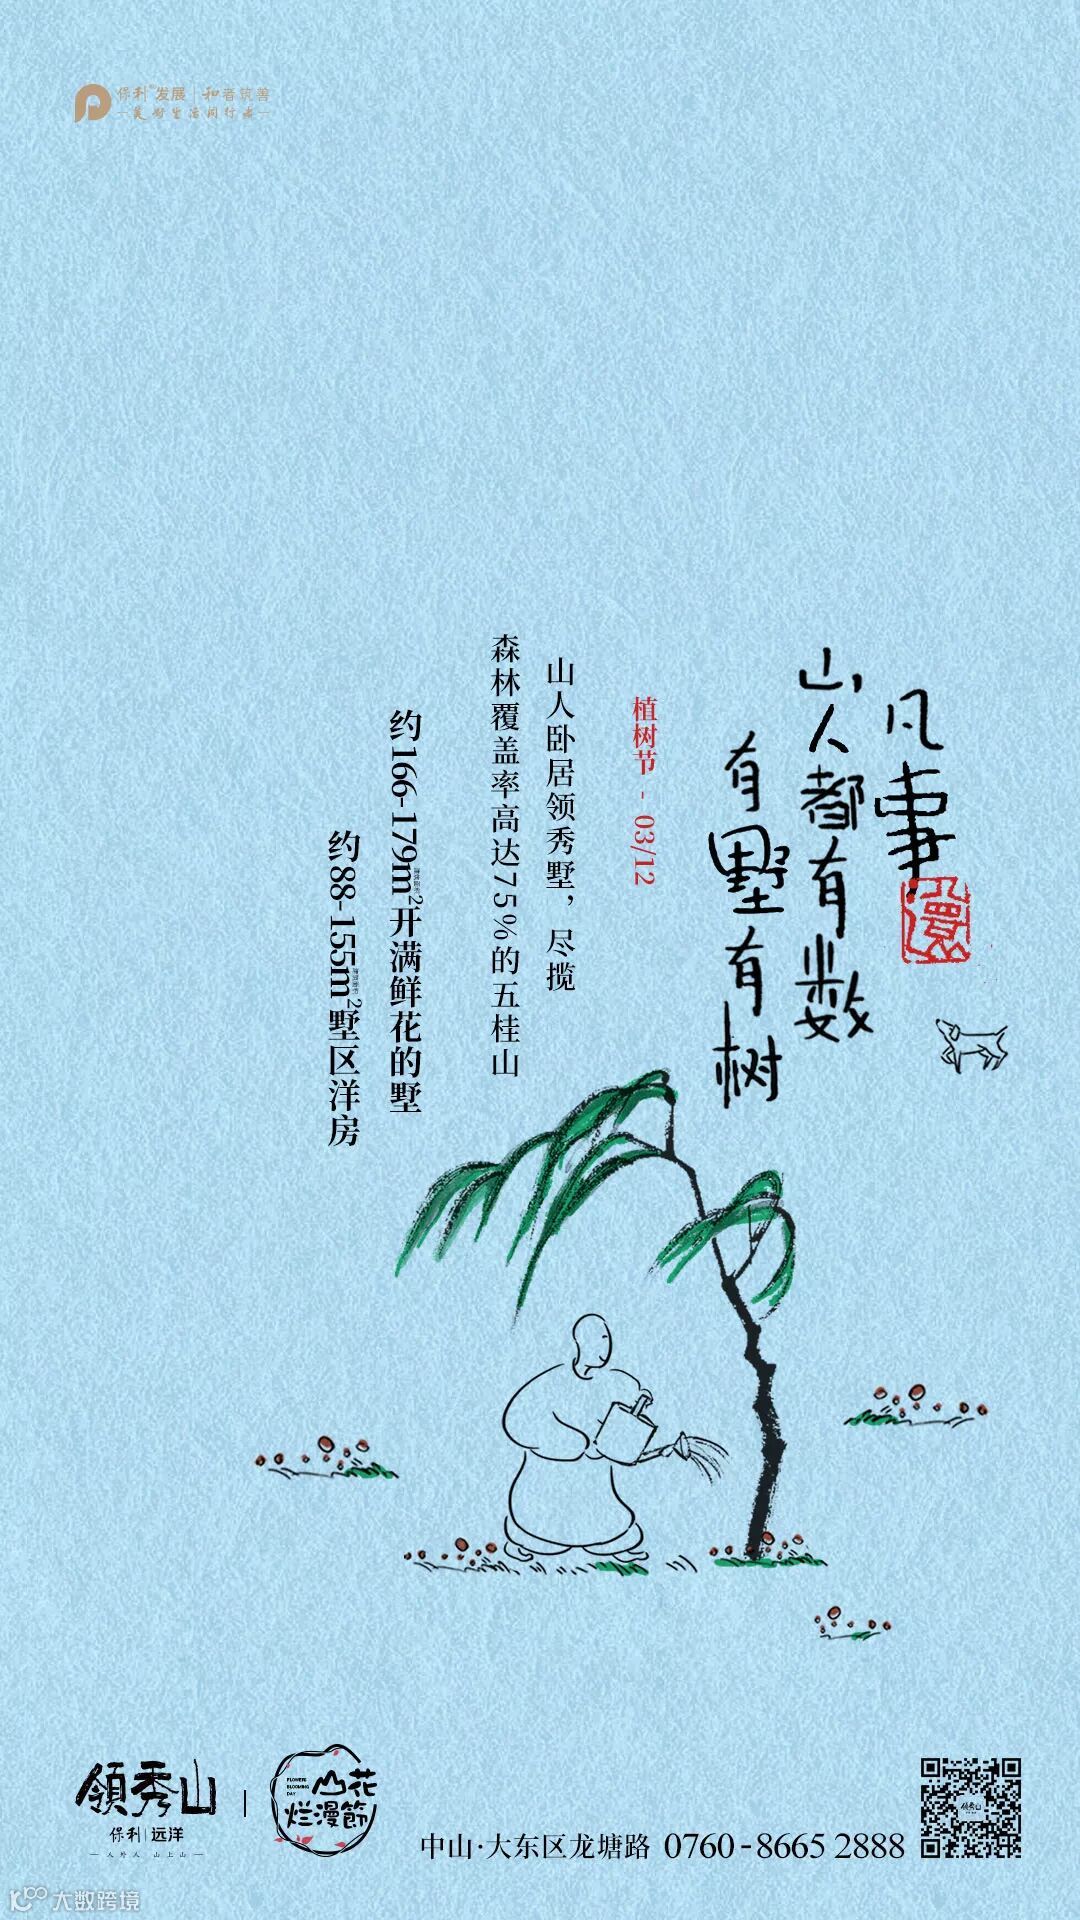 保利发展 | 和者筑善
美好生活同行者
凡事
山人都有数
有墅有树
植树节 - 03/12
山人卧居领秀墅，尽揽
森林覆盖率高达75%的五桂山
约166-179m²开满鲜花的墅
约88-155m²墅区洋房
领秀山
保利 | 远洋
人外人 山上山
FLOWERS
BLOOMING
DAY
山花
烂漫節
中山·大东区龙塘路 0760-8665 2888
大数跨境